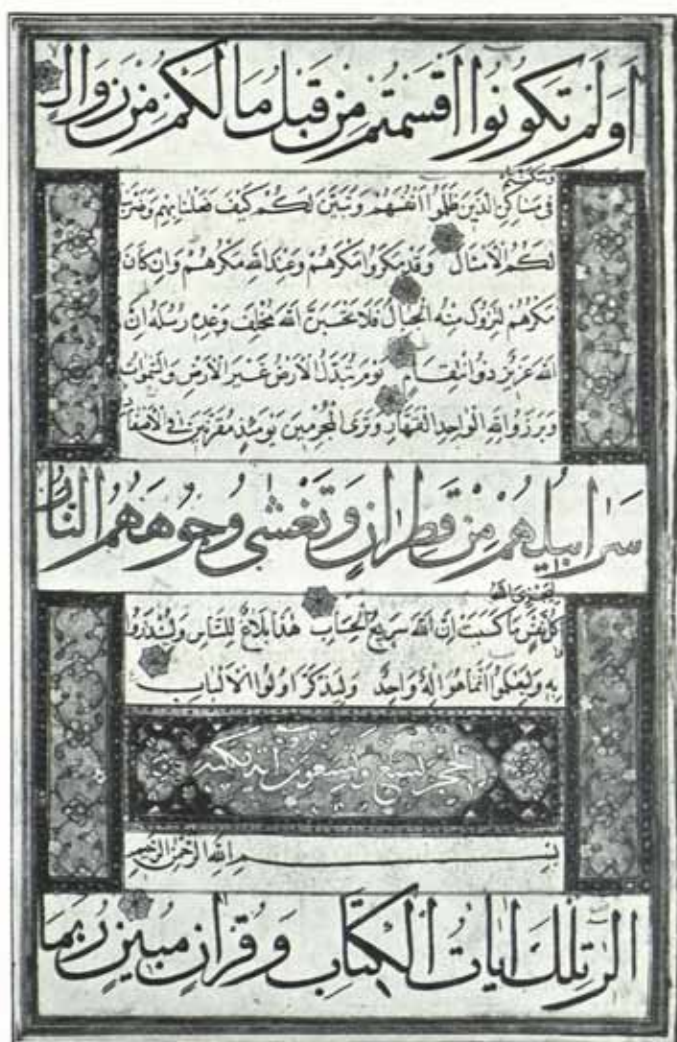 اَوَلَمْ تَكُونُوا اَقْسَمْتُمْ مِنْ قَبْلُ مَا لَكُمْ مِنْ زَوَالٍ
وَسَكَنْتُمْ
فِي مَسَاكِنِ الَّذِينَ ظَلَمُوا اَنْفُسَهُمْ وَتَبَيَّنَ لَكُمْ كَيْفَ فَعَلْنَا بِهِمْ وَضَرَبْنَا
لَكُمُ الْاَمْثَالَ وَقَدْ مَكَرُوا مَكْرَهُمْ وَعِنْدَ اللَّهِ مَكْرُهُمْ وَاِنْ كَانَ
مَكْرُهُمْ لِتَزُولَ مِنْهُ الْجِبَالُ فَلَا تَحْسَبَنَّ اللَّهَ مُخْلِفَ وَعْدِهِ رُسُلَهُ اِنَّ
اللَّهَ عَزِيزٌ ذُو انْتِقَامٍ يَوْمَ تُبَدَّلُ الْاَرْضُ غَيْرَ الْاَرْضِ وَالسَّمٰوَاتُ
وَبَرَزُوا لِلَّهِ الْوَاحِدِ الْقَهَّارِ وَتَرَى الْمُجْرِمِينَ يَوْمَئِذٍ مُقَرَّنِينَ فِي الْاَصْفَادِ
سَرَابِيلُهُمْ مِنْ قَطِرَانٍ وَتَغْشٰى وُجُوهَهُمُ النَّارُ
لِيَجْزِيَ اللَّهُ
كُلَّ نَفْسٍ مَا كَسَبَتْ اِنَّ اللَّهَ سَرِيعُ الْحِسَابِ هٰذَا بَلَاغٌ لِلنَّاسِ وَلِيُنْذَرُوا
بِهِ وَلِيَعْلَمُوا اَنَّمَا هُوَ اِلٰهٌ وَاحِدٌ وَلِيَذَّكَّرَ اُولُوا الْاَلْبَابِ
الحجر تسع وتسعون آية مكية
بِسْمِ اللَّهِ الرَّحْمٰنِ الرَّحِيمِ
الٓرٰ تِلْكَ اٰيَاتُ الْكِتَابِ وَقُرْاٰنٍ مُبِينٍ رُبَمَا